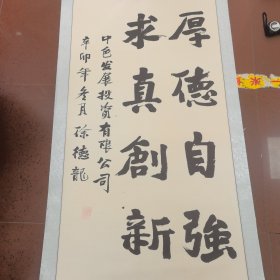 厚德自強
求真創新
中色发展投资有限公司
辛卯年冬月 徐德龍